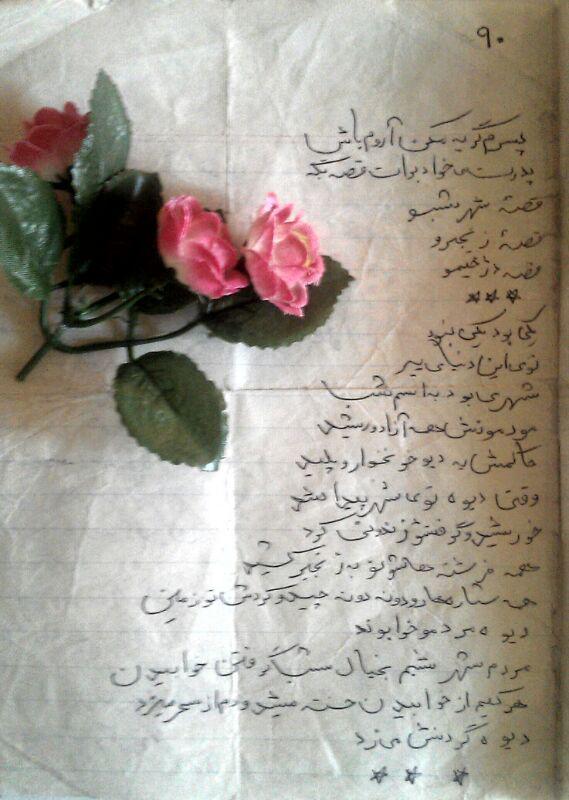 ۹۰
پسرم گریه مکن آروم باش
پدرت می‌خواد برات قصه بگه
قصهٔ شهر شبو
قصهٔ زنجیرو
قصه دژخیمو
٭٭٭
یکی بود یکی نبود
توی این دنیای پیر
شهری بود به اسم شب
مردمونش همه آزاد و رشید
حاکمش یه دیو خونخوار و پلید
وقتی دیوه توی شهر پیدا میشد
خورشید و گرفتش و زندونی کرد
همه فرشته هاشونو به زنجیر کشید
همه ستاره ها رو دونه دونه چید و کردش تو زمین
دیوه مردمو خوابوند
مردم شهر شبم بخیال شب گرفتن خوابیدن
هرکیم از خوابیدن خسته میشد و دم از سحر میزد
دیوه گردنش می زد
٭ ٭ ٭